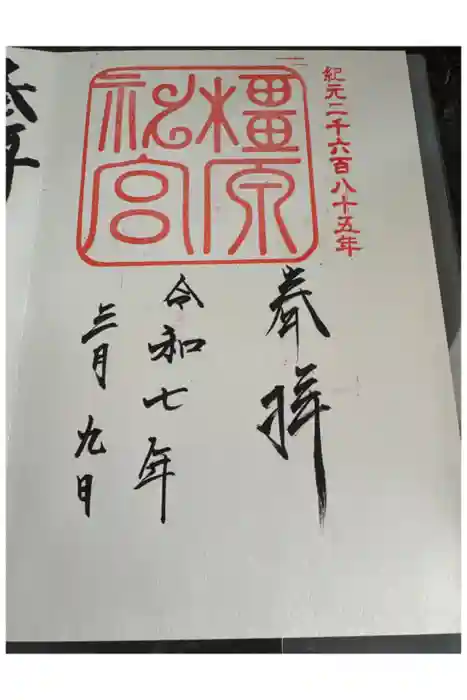 紀元二千六百八十五年
橿原
神宮
奉拜
令和七年
三月九日